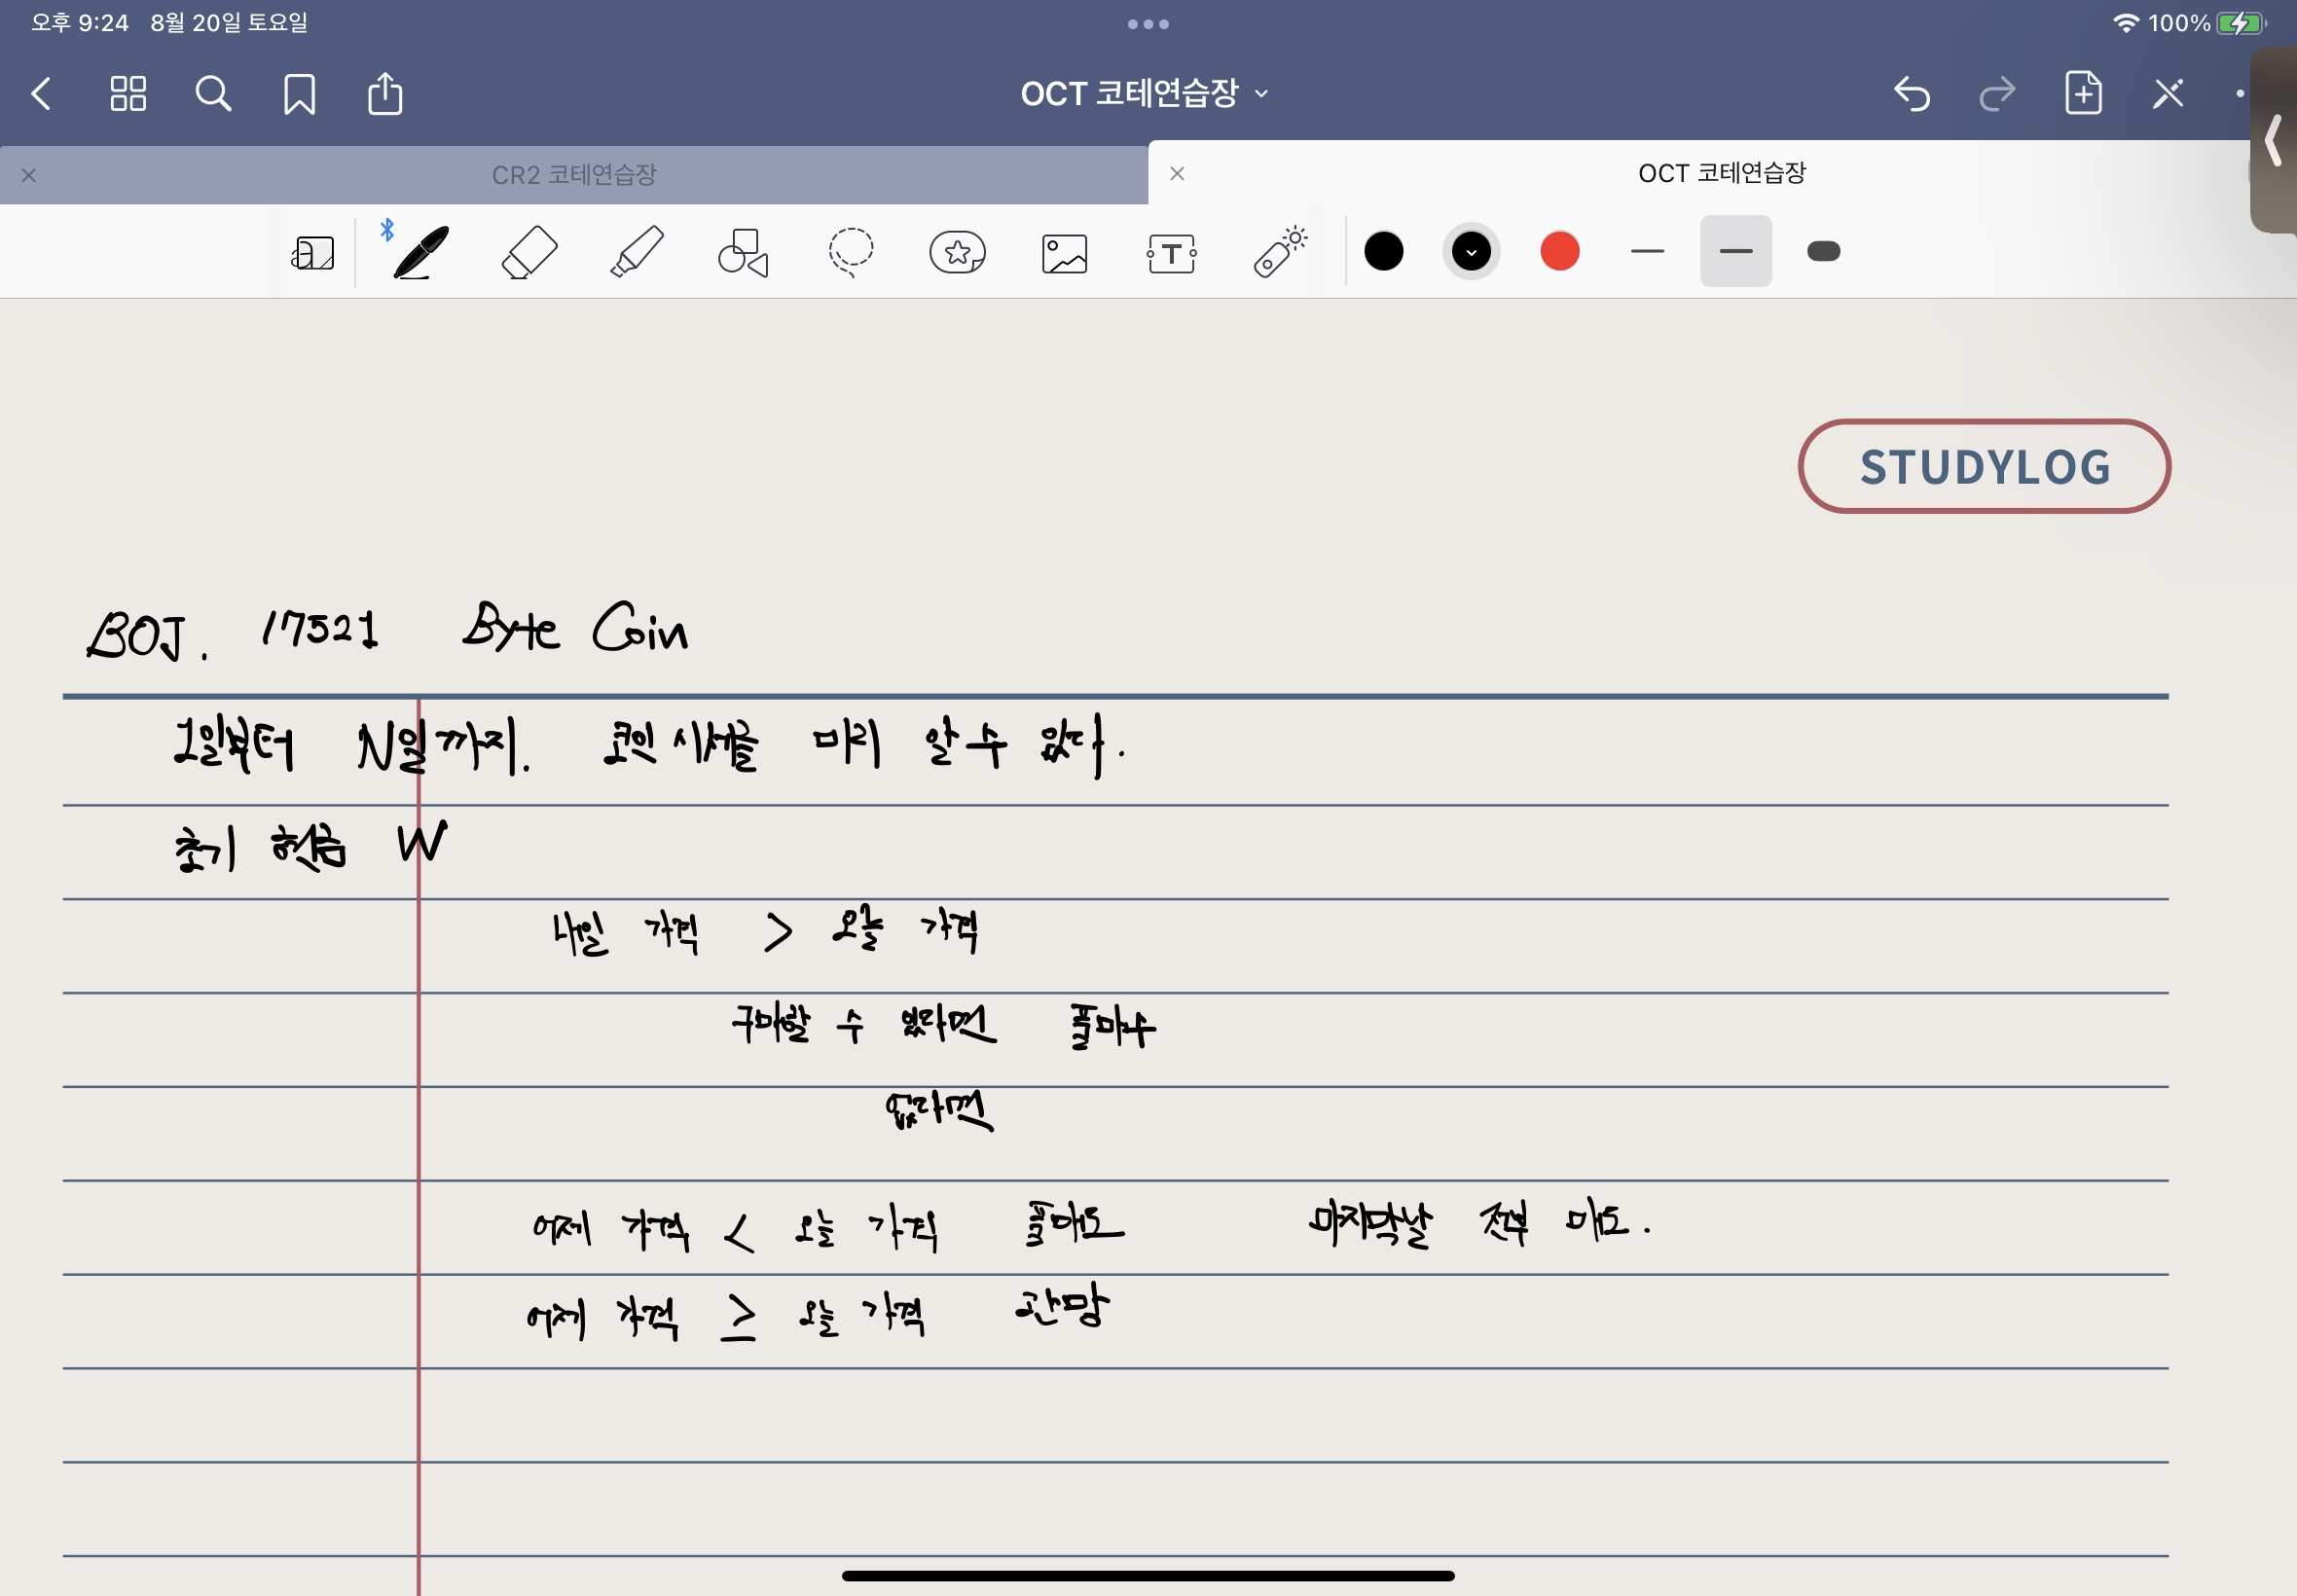 오후 9:24 8월 20일 토요일 100%
OCT 코테연습장
CR2 코테연습장
OCT 코테연습장
STUDYLOG
BOJ. 17521 Byte Coin
1일부터 N일까지. 코인 시세를 미리 알 수 있다.
초기 현금 W
내일 가격 > 오늘 가격
구매할 수 있다면 풀매수
없다면
어제 가격 < 오늘 가격 풀매도 마지막날 전부 매도.
어제 가격 ≥ 오늘 가격 관망